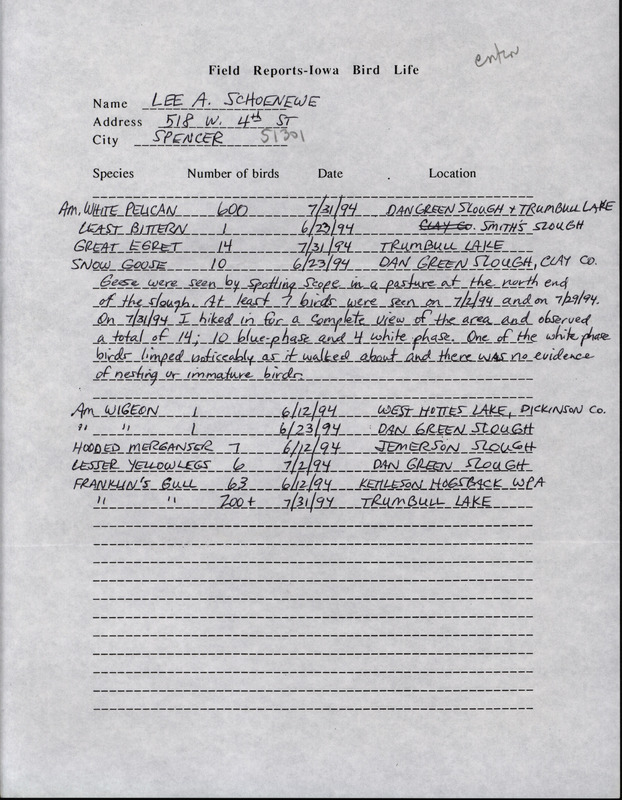 enter
Field Reports-Iowa Bird Life
Name LEE A. SCHOENEWE
Address 518 W. 4th ST
City SPENCER 51301
Species Number of birds Date Location
Am. WHITE PELICAN 600 7/31/94 DAN GREEN SLOUGH + TRUMBULL LAKE
LEAST BITTERN 1 6/23/94 CLAY CO. SMITH'S SLOUGH
GREAT EGRET 14 7/31/94 TRUMBULL LAKE
SNOW GOOSE 10 6/23/94 DAN GREEN SLOUGH, CLAY CO.
Geese were seen by spotting scope in a pasture at the north end
of the slough. At least 7 birds were seen on 7/2/94 and on 7/29/94.
On 7/31/94 I hiked in for a complete view of the area and observed
a total of 14; 10 blue-phase and 4 white phase. One of the white phase
birds limped noticeably as it walked about and there was no evidence
of nesting or immature birds.
Am WIGEON 1 6/12/94 WEST HOTTES LAKE, DICKINSON CO.
" " 1 6/23/94 DAN GREEN SLOUGH
HOODED MERGANSER 7 6/12/94 JEMERSON SLOUGH
LESSER YELLOWLEGS 6 7/2/94 DAN GREEN SLOUGH
FRANKLIN'S GULL 63 6/12/94 KETTLESON HOGSBACK WPA
" " 200+ 7/31/94 TRUMBULL LAKE